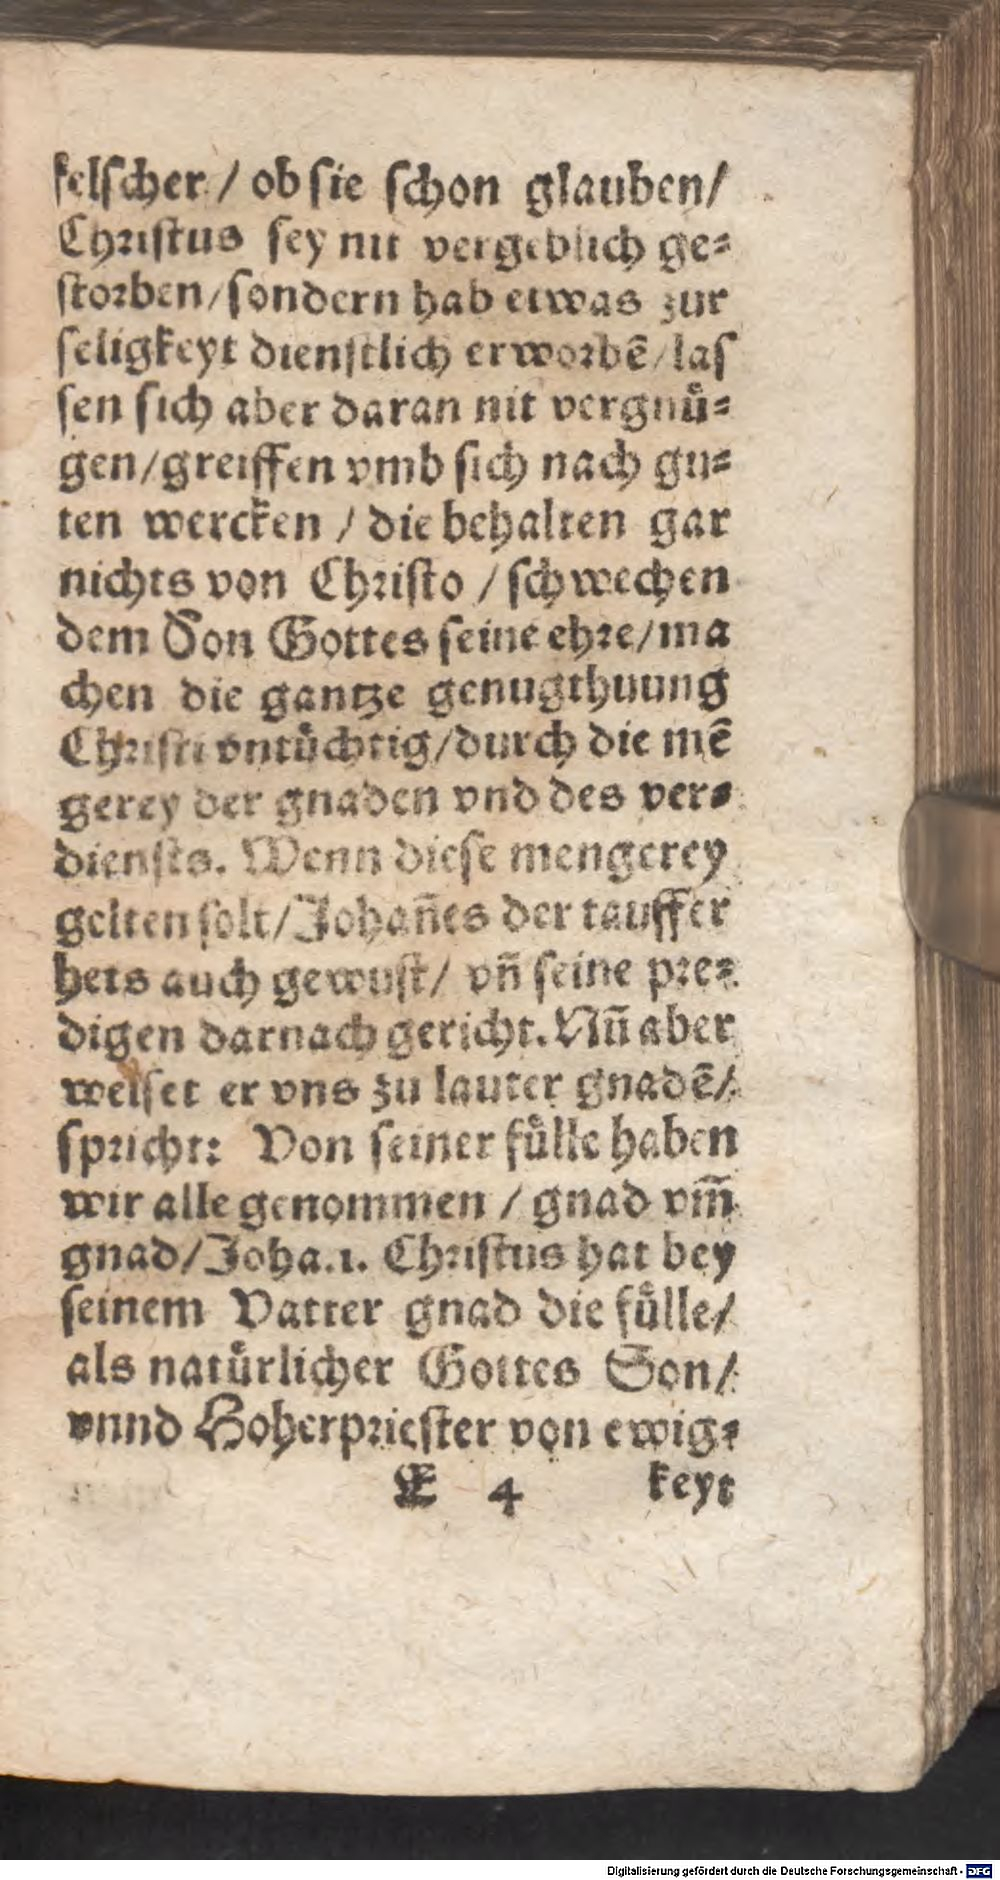 felſcher / ob ſie ſchon glauben/
Chriſtus ſey nit vergeblich ge⸗
ſtorben/ſondern hab etwas zur
ſeligkeyt dienſtlich erworbē/laſ
ſen ſich aber daran nit vergnuͤ⸗
gen/greiffen vmb ſich nach gu⸗
ten wercken / die behalten gar
nichts von Chriſto / ſchwechen
dem Son Gottes ſeine ehre/ma
chen die gantze genugthuung
Chriſti vntuͤchtig/durch die mē
gerey der gnaden vnd des ver⸗
dienſts. Wenn dieſe mengerey
gelten ſolt/Johañes der tauffer
hets auch gewuſt/ vñ ſeine pre⸗
digen darnach gericht. Nuͦ aber
weiſet er vns zu lauter gnadē/
ſpricht: Von ſeiner fuͤlle haben
wir alle genommen / gnad vm̃
gnad/Joha.1. Chriſtus hat bey
ſeinem Vatter gnad die fuͤlle/
als natuͤrlicher Gottes Son/
vnnd Hoherprieſter von ewig⸗
E 4 keyt
Digitalisierung gefördert durch die Deutsche Forschungsgemeinschaft - DFG